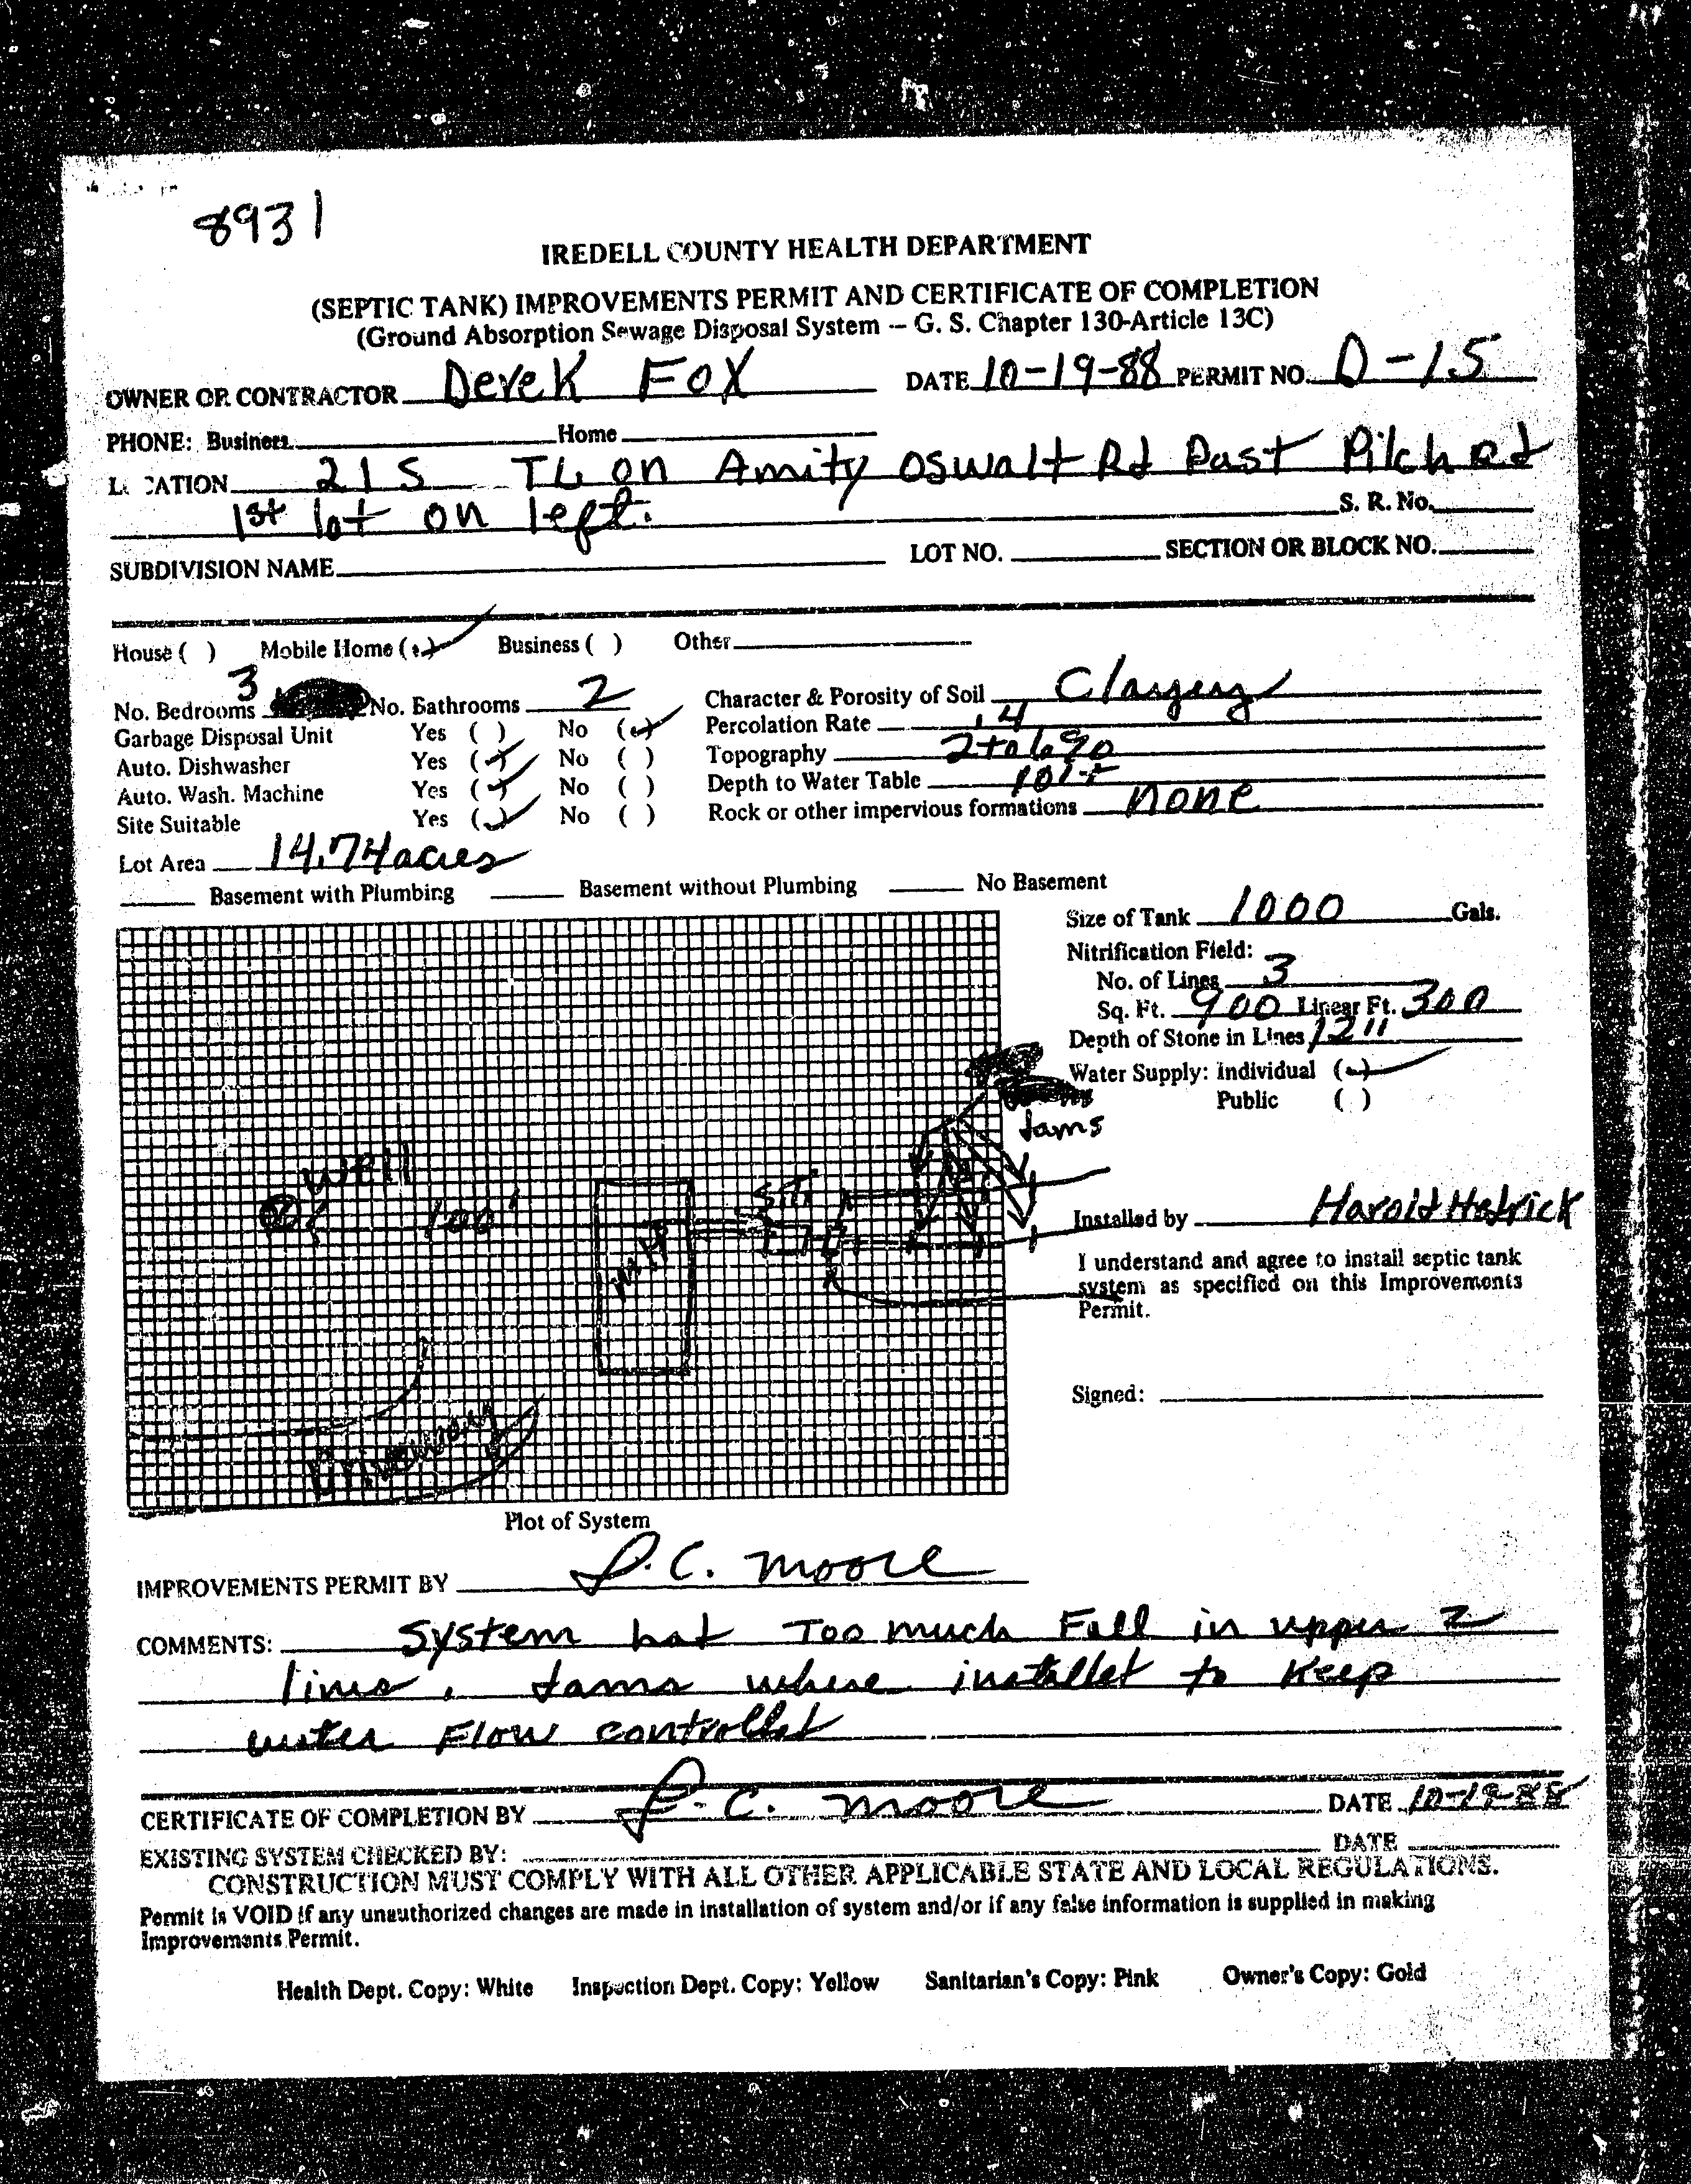 8931
IREDELL COUNTY HEALTH DEPARTMENT
(SEPTIC TANK) IMPROVEMENTS PERMIT AND CERTIFICATE OF COMPLETION
(Ground Absorption Sewage Disposal System -- G. S. Chapter 130-Article 13C)
OWNER OR CONTRACTOR Derek Fox DATE 10-19-88 PERMIT NO. D-15
PHONE: Business Home
LOCATION 21 S TL on Amity Oswalt Rd Past Pilch Rd
1st lot on left. S. R. No.
SUBDIVISION NAME LOT NO. SECTION OR BLOCK NO.
House ( ) Mobile Home (✓) Business ( ) Other
No. Bedrooms 3 No. Bathrooms 2 Character & Porosity of Soil Clayey
Garbage Disposal Unit Yes ( ) No (✓) Percolation Rate .4
Auto. Dishwasher Yes (✓) No ( ) Topography 2 to 6%
Auto. Wash. Machine Yes (✓) No ( ) Depth to Water Table 10'+
Site Suitable Yes (✓) No ( ) Rock or other impervious formations none
Lot Area 14.74 acres
Basement with Plumbing Basement without Plumbing No Basement
Size of Tank 1000 Gals.
Nitrification Field:
No. of Lines 3
Sq. Ft. 900 Linear Ft. 300
Depth of Stone in Lines 12"
Water Supply: Individual (✓)
Public ( )
dams
well
100'
MH
S.T.
Driveway
Installed by Harold Hedrick
I understand and agree to install septic tank
system as specified on this Improvements
Permit.
Signed:
Plot of System
IMPROVEMENTS PERMIT BY L.C. Moore
COMMENTS: System had Too much Fall in upper 2
lines, dams where installed to Keep
water Flow controlled
CERTIFICATE OF COMPLETION BY L.C. Moore DATE 10-19-88
EXISTING SYSTEM CHECKED BY: DATE
CONSTRUCTION MUST COMPLY WITH ALL OTHER APPLICABLE STATE AND LOCAL REGULATIONS.
Permit is VOID if any unauthorized changes are made in installation of system and/or if any false information is supplied in making
Improvements Permit.
Health Dept. Copy: White Inspection Dept. Copy: Yellow Sanitarian's Copy: Pink Owner's Copy: Gold